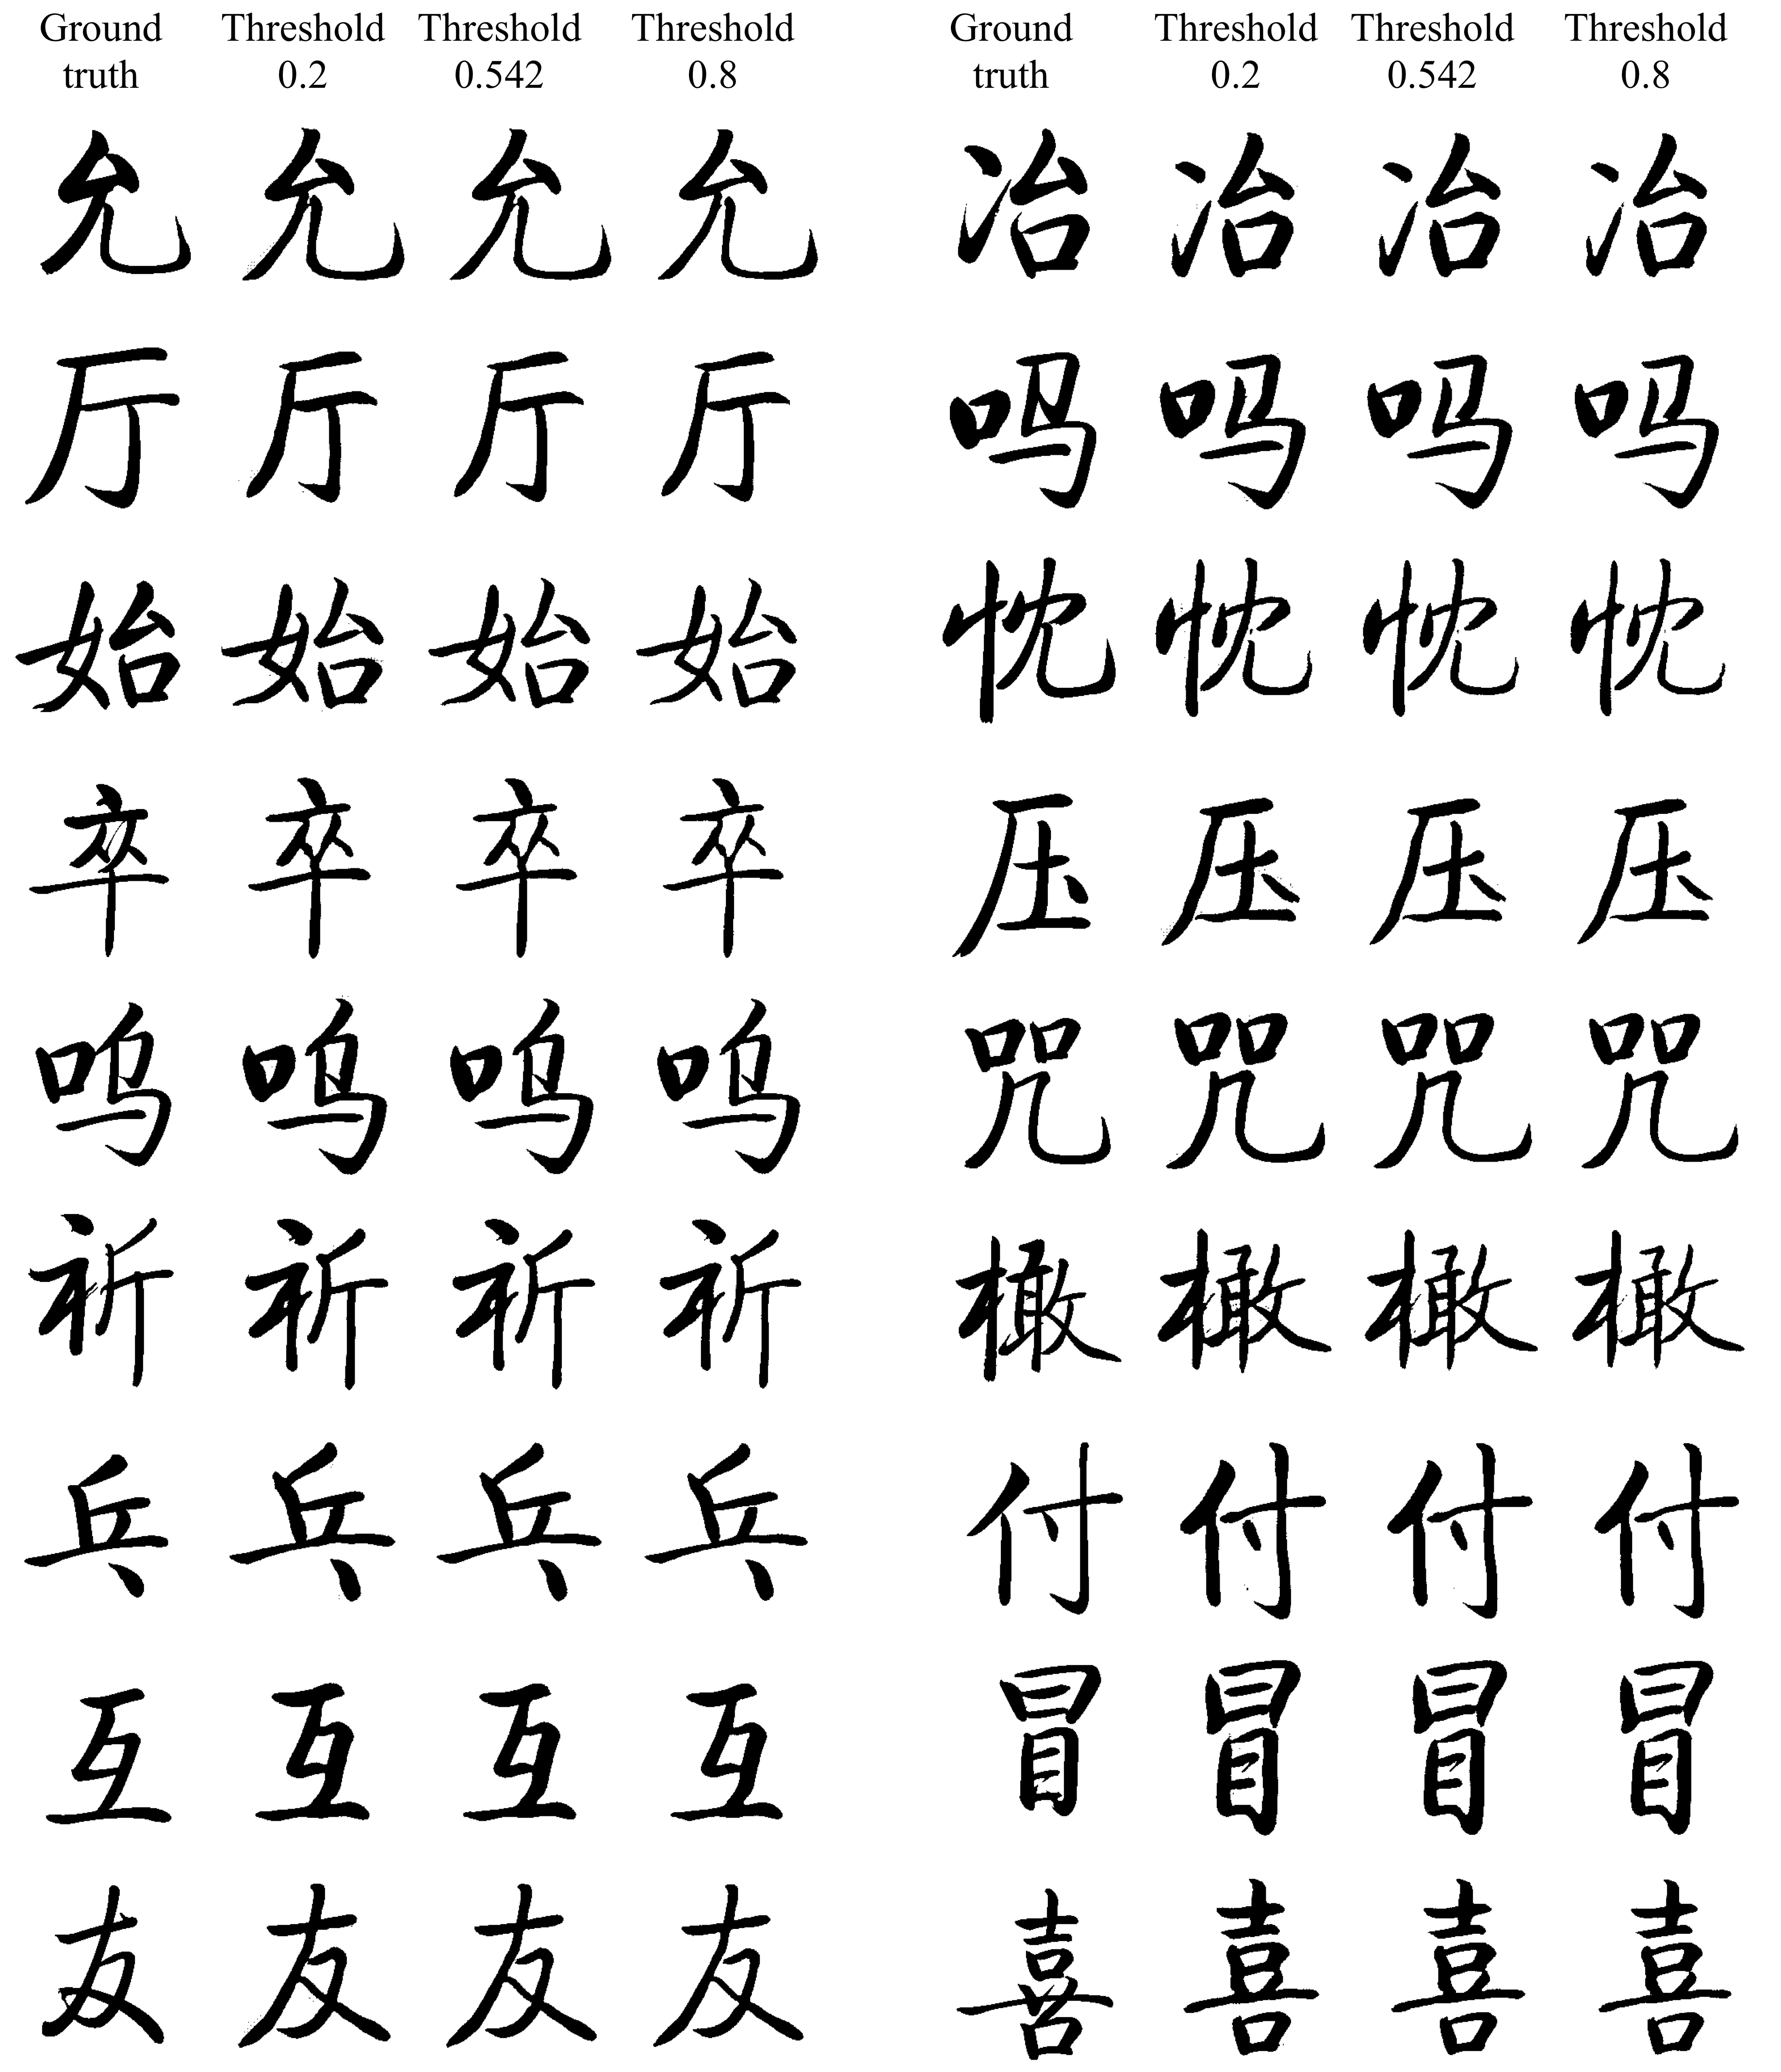 Ground Threshold Threshold Threshold Ground Threshold Threshold Threshold
truth 0.2 0.542 0.8 truth 0.2 0.542 0.8
允 允 允 允 冶 冶 冶 冶
厅 厅 厅 厅 吗 吗 吗 吗
始 始 始 始 忱 忱 忱 忱
卒 卒 卒 卒 压 压 压 压
呜 呜 呜 呜 咒 咒 咒 咒
祈 祈 祈 祈 橄 橄 橄 橄
乓 乓 乓 乓 付 付 付 付
互 互 互 互 冒 冒 冒 冒
友 友 友 友 喜 喜 喜 喜